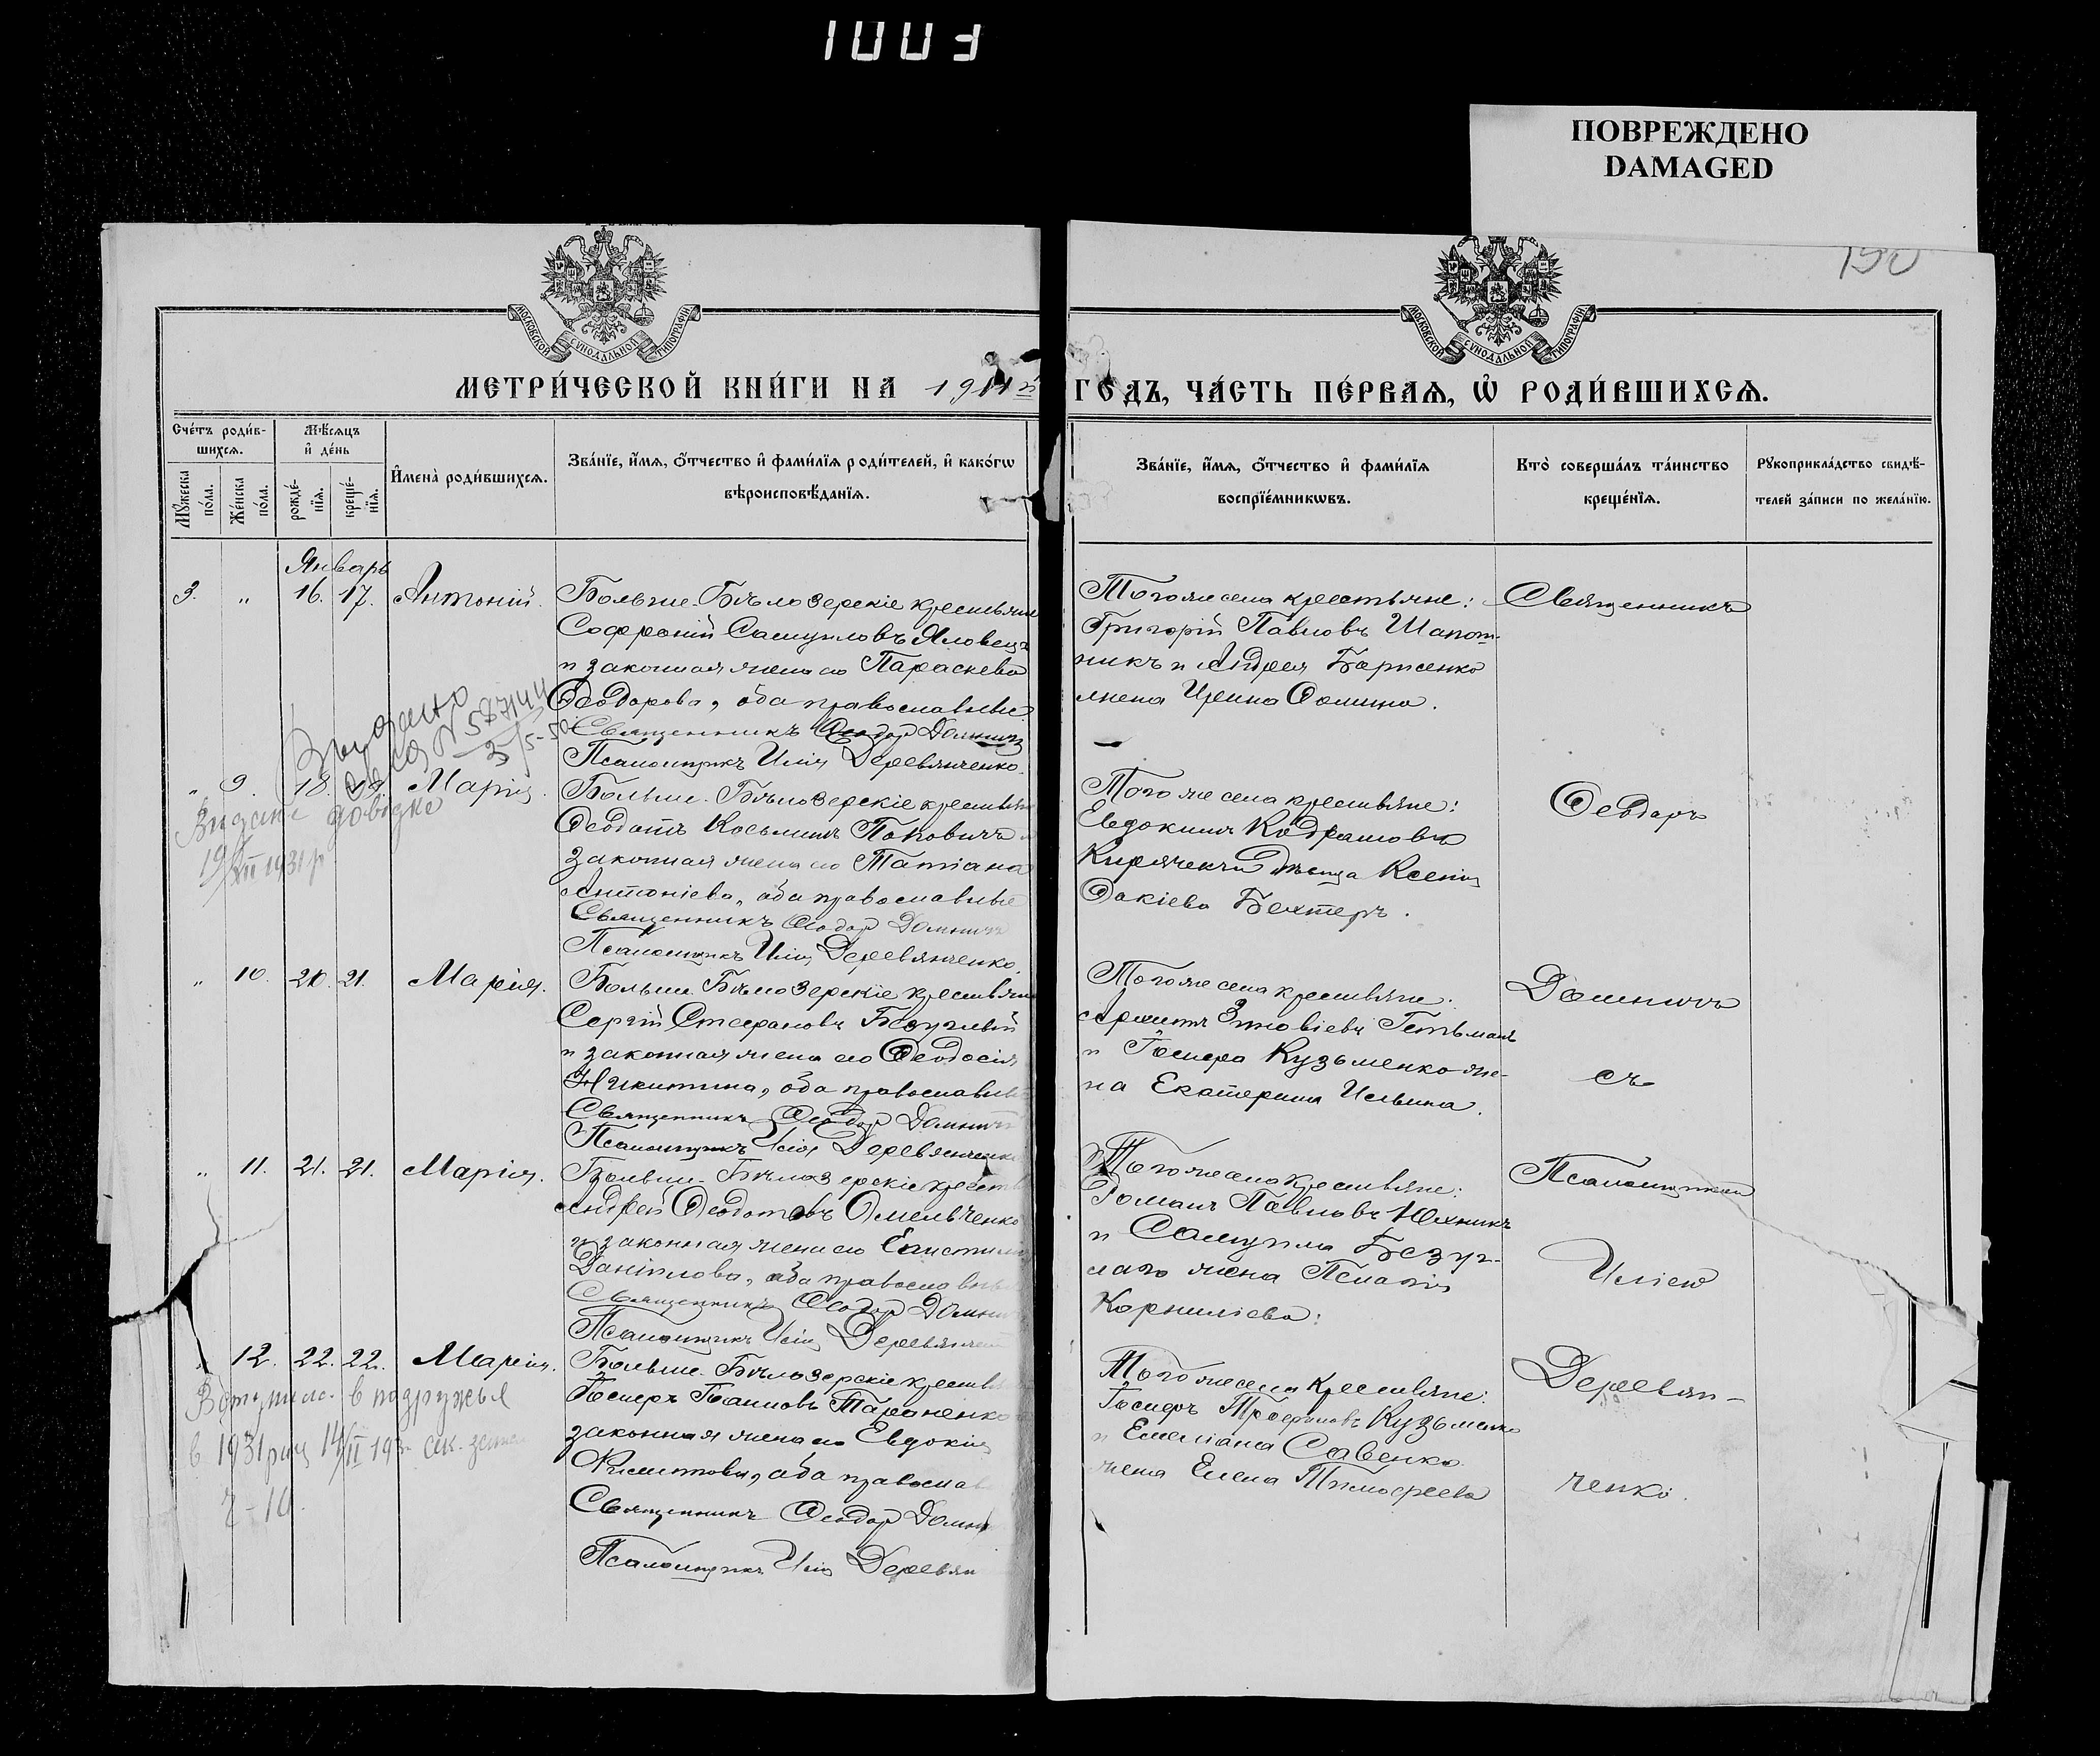 1003
ПОВРЕЖДЕНО
DAMAGED
190
МОСКОВСКОЙ СѴНОДАЛЬНОЙ ТИПОГРАФІИ
МОСКОВСКОЙ СѴНОДАЛЬНОЙ ТИПОГРАФІИ
МЕТРИ́ЧЕСКОЙ КНИ́ГИ НА 1911й ГО́ДЪ, ЧА́СТЬ ПЕ́РВАѦ, Ѡ҆ РОДИ́ВШИХСѦ.
Сче́тъ роди́в-
шихсѧ.
Мѣ́сѧцъ
и҆ де́нь
Мꙋ́жеска
по́ла.
Же́нска
по́ла.
рожде́-
нїѧ.
креще́-
нїѧ.
И҆мена̀ роди́вшихсѧ.
Зва́нїе, и҆́мѧ, ѻ҆́тчество и҆ фами́лїѧ роди́телей, и҆ како́гѡ
вѣроисповѣ́данїѧ.
Зва́нїе, и҆́мѧ, ѻ҆́тчество и҆ фами́лїѧ
воспрїе́мникѡвъ.
Кто̀ соверша́лъ та́инство
креще́нїѧ.
Рꙋкоприкла́дство свидѣ́-
телей за́писи по жела́нїю.
Январь
3. " 16. 17. Антоній.
Больше-Бѣлозерскіе крестьяне
Софроній Самуиловъ Яловец
и законная жена его Параскева
Ѳеодорова, оба православные
Священникъ Ѳеодор Домнич
Псаломщикъ Илія Деревянченко.
Тогоже села крестьяне:
Григорій Павловъ Шапош-
никъ и Андрея Борисенко
жена Ирина Ѳомина.
Священникъ
Выдано
" 9. 18. Марія.
Видано довідке
19/XII 1931 р
Больше-Бѣлозерскіе крестьяне
Ѳеодотъ Косьминъ Поповичъ
законная жена его Татіана
Антоніева, оба православные
Священникъ Ѳеодор Домнич
Псаломщикъ Илія Деревянченко.
Тогоже села крестьяне:
Евдокимъ Кодратовъ
Киряченко дѣвица Ксенія
Бехтеръ.
Ѳеодоръ
" 10. 20. 21. Марія.
Больше Бѣлозерскіе крестьяне
Сергій Стефановъ Безуглый
и законная жена его Ѳеодосія
Никитина, оба православные
Священникъ Ѳеодор Домнич
Псаломщикъ Илія Деревянченко
Тогоже села крестьяне:
Зиновіевъ Гетьман
и Іосифа Кузьменко же-
на Екатерина Ильина.
Домничъ
съ
" 11. 21. 21. Марія.
Больше-Бѣлозерскіе крест
Андрей Ѳеодотовъ Омельченко
и законная жена его
Даніилова, оба православные
Священникъ Ѳеодор Домнич
Псаломщикъ Илія Деревянчен
Тогоже села крестьяне:
Романъ Павловъ Юхникъ
и Самуила Безуг-
лаго жена Пелагія
Корниліева:
Псаломщикомъ
Иліею
" 12. 22. 22. Марія.
Вступила в подружжя
в 1931 році 14/II 193
Больше-Бѣлозерскіе крестья
Іосифъ Іоанновъ Тараненко
законная жена его Евдокія
оба православ
Священникъ Ѳеодор Домн
Псаломщикъ Илія Деревян
Тогоже села крестьяне:
Іосифъ Трофимовъ Кузьменко
и Емеліана Савенко
жена Елена Тимофеева
Деревян-
ченко.